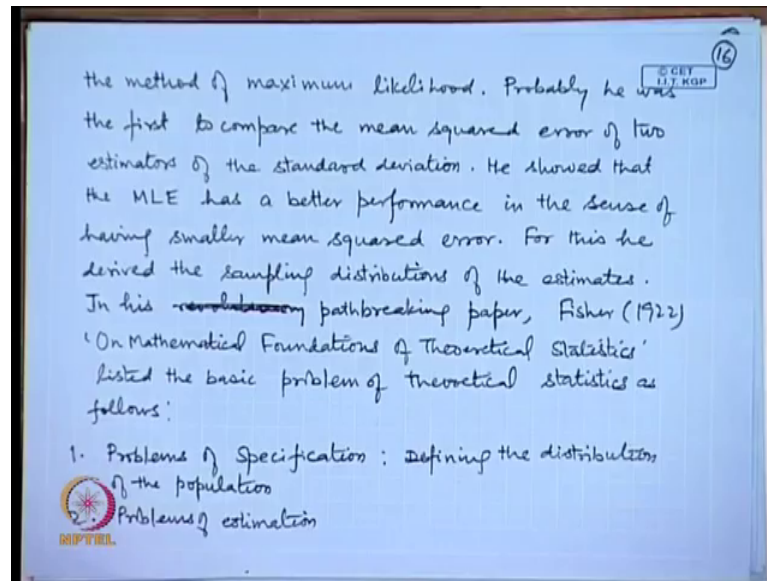 16
© CET
I.I.T. KGP
the method of maximum likelihood. Probably he was
the first to compare the mean squared error of two
estimators of the standard deviation. He showed that
the MLE has a better performance in the sense of
having smaller mean squared error. For this he
derived the sampling distributions of the estimates.
In his pathbreaking paper, Fisher (1922)
'On Mathematical Foundations of Theoretical Statistics'
listed the basic problem of theoretical statistics as
follows:
1. Problems of Specification: Defining the distribution
of the population
2. Problems of estimation
NPTEL